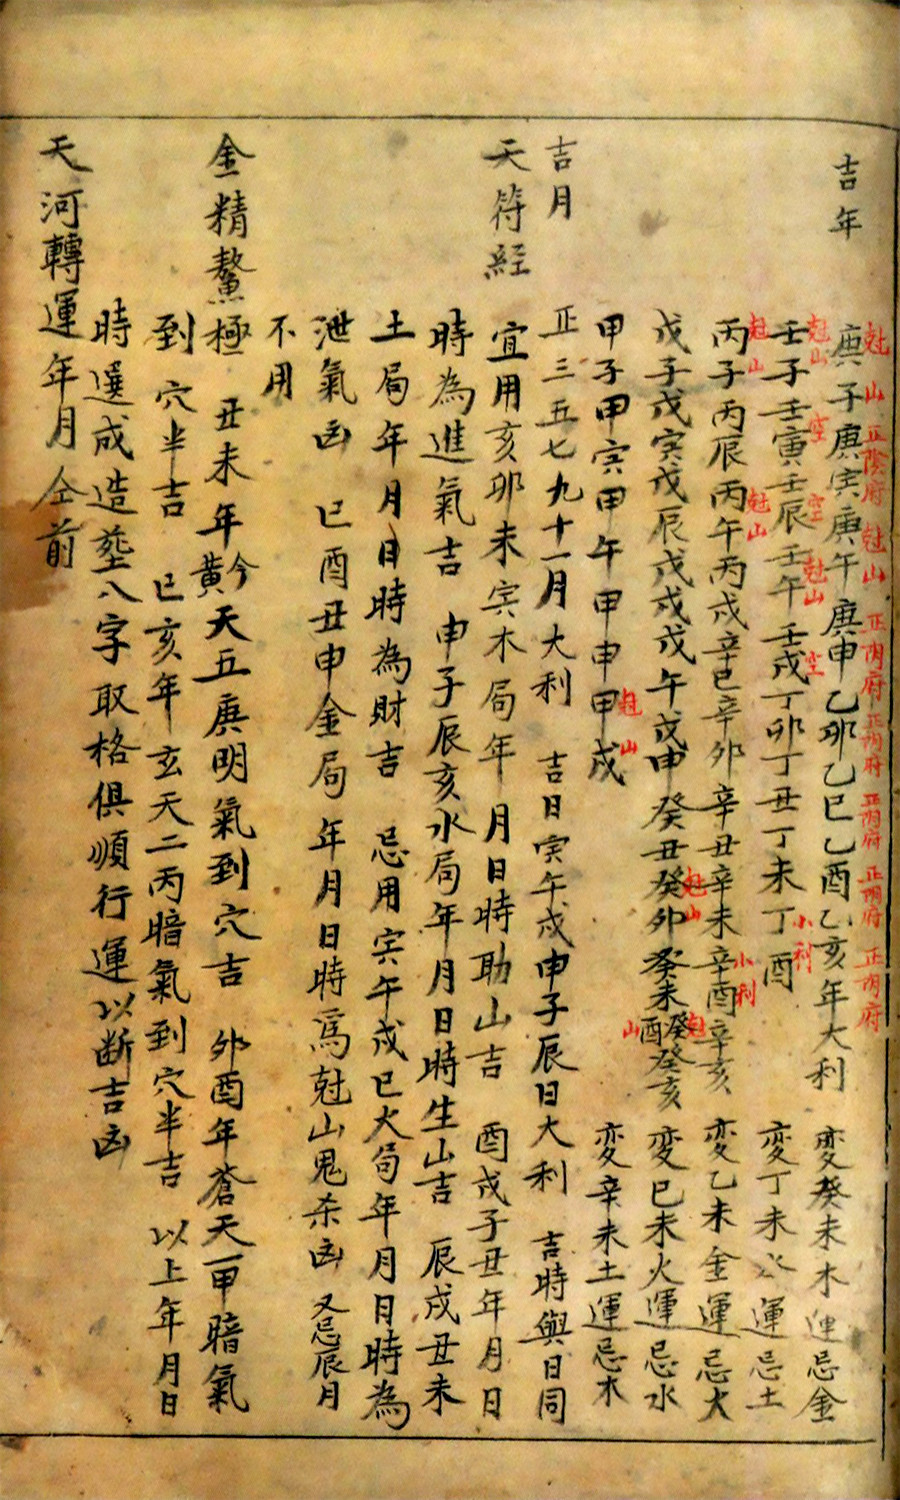 吉年
庚子庚寅庚午庚申乙卯乙巳乙酉乙亥年大利 変癸未木運忌金
尅山 正陰府 尅山 正阴府 正阴府 正阴府 正阴府 正阴府
壬子壬寅壬辰壬午壬戌丁卯丁丑丁未丁酉 変丁未水運忌土
尅山 空 空 尅山 空 小利
丙子丙辰丙午丙戌辛巳辛卯辛丑辛未辛酉辛亥 変乙未金運忌火
尅山 尅山 小利
戊子戊寅戊辰戊戌戊午戊申癸丑癸卯癸未癸酉癸亥 変巳未火運忌水
尅山 尅山
甲子甲寅甲午甲申甲戌 変辛未土運忌木
尅山
吉月 正三五七九十一月大利 吉日寅午戌申子辰日大利 吉時與日同
天符經 宜用亥卯未寅木局年月日時助山吉 酉戌子丑年月日
時為進氣吉 申子辰亥水局年月日時生山吉 辰戌丑未
土局年月日時為財吉 忌用寅午戌巳火局年月日時為
泄氣凶 巳酉丑申金局年月日時爲尅山鬼杀凶 又忌辰月
不用
金精鰲極 丑未年今黃天五庚明氣到穴吉 卯酉年蒼天一甲暗氣
到穴半吉 巳亥年玄天二丙暗氣到穴半吉 以上年月日
時選成造塟八字取格俱順行運以斷吉凶
天河轉運年月仝前